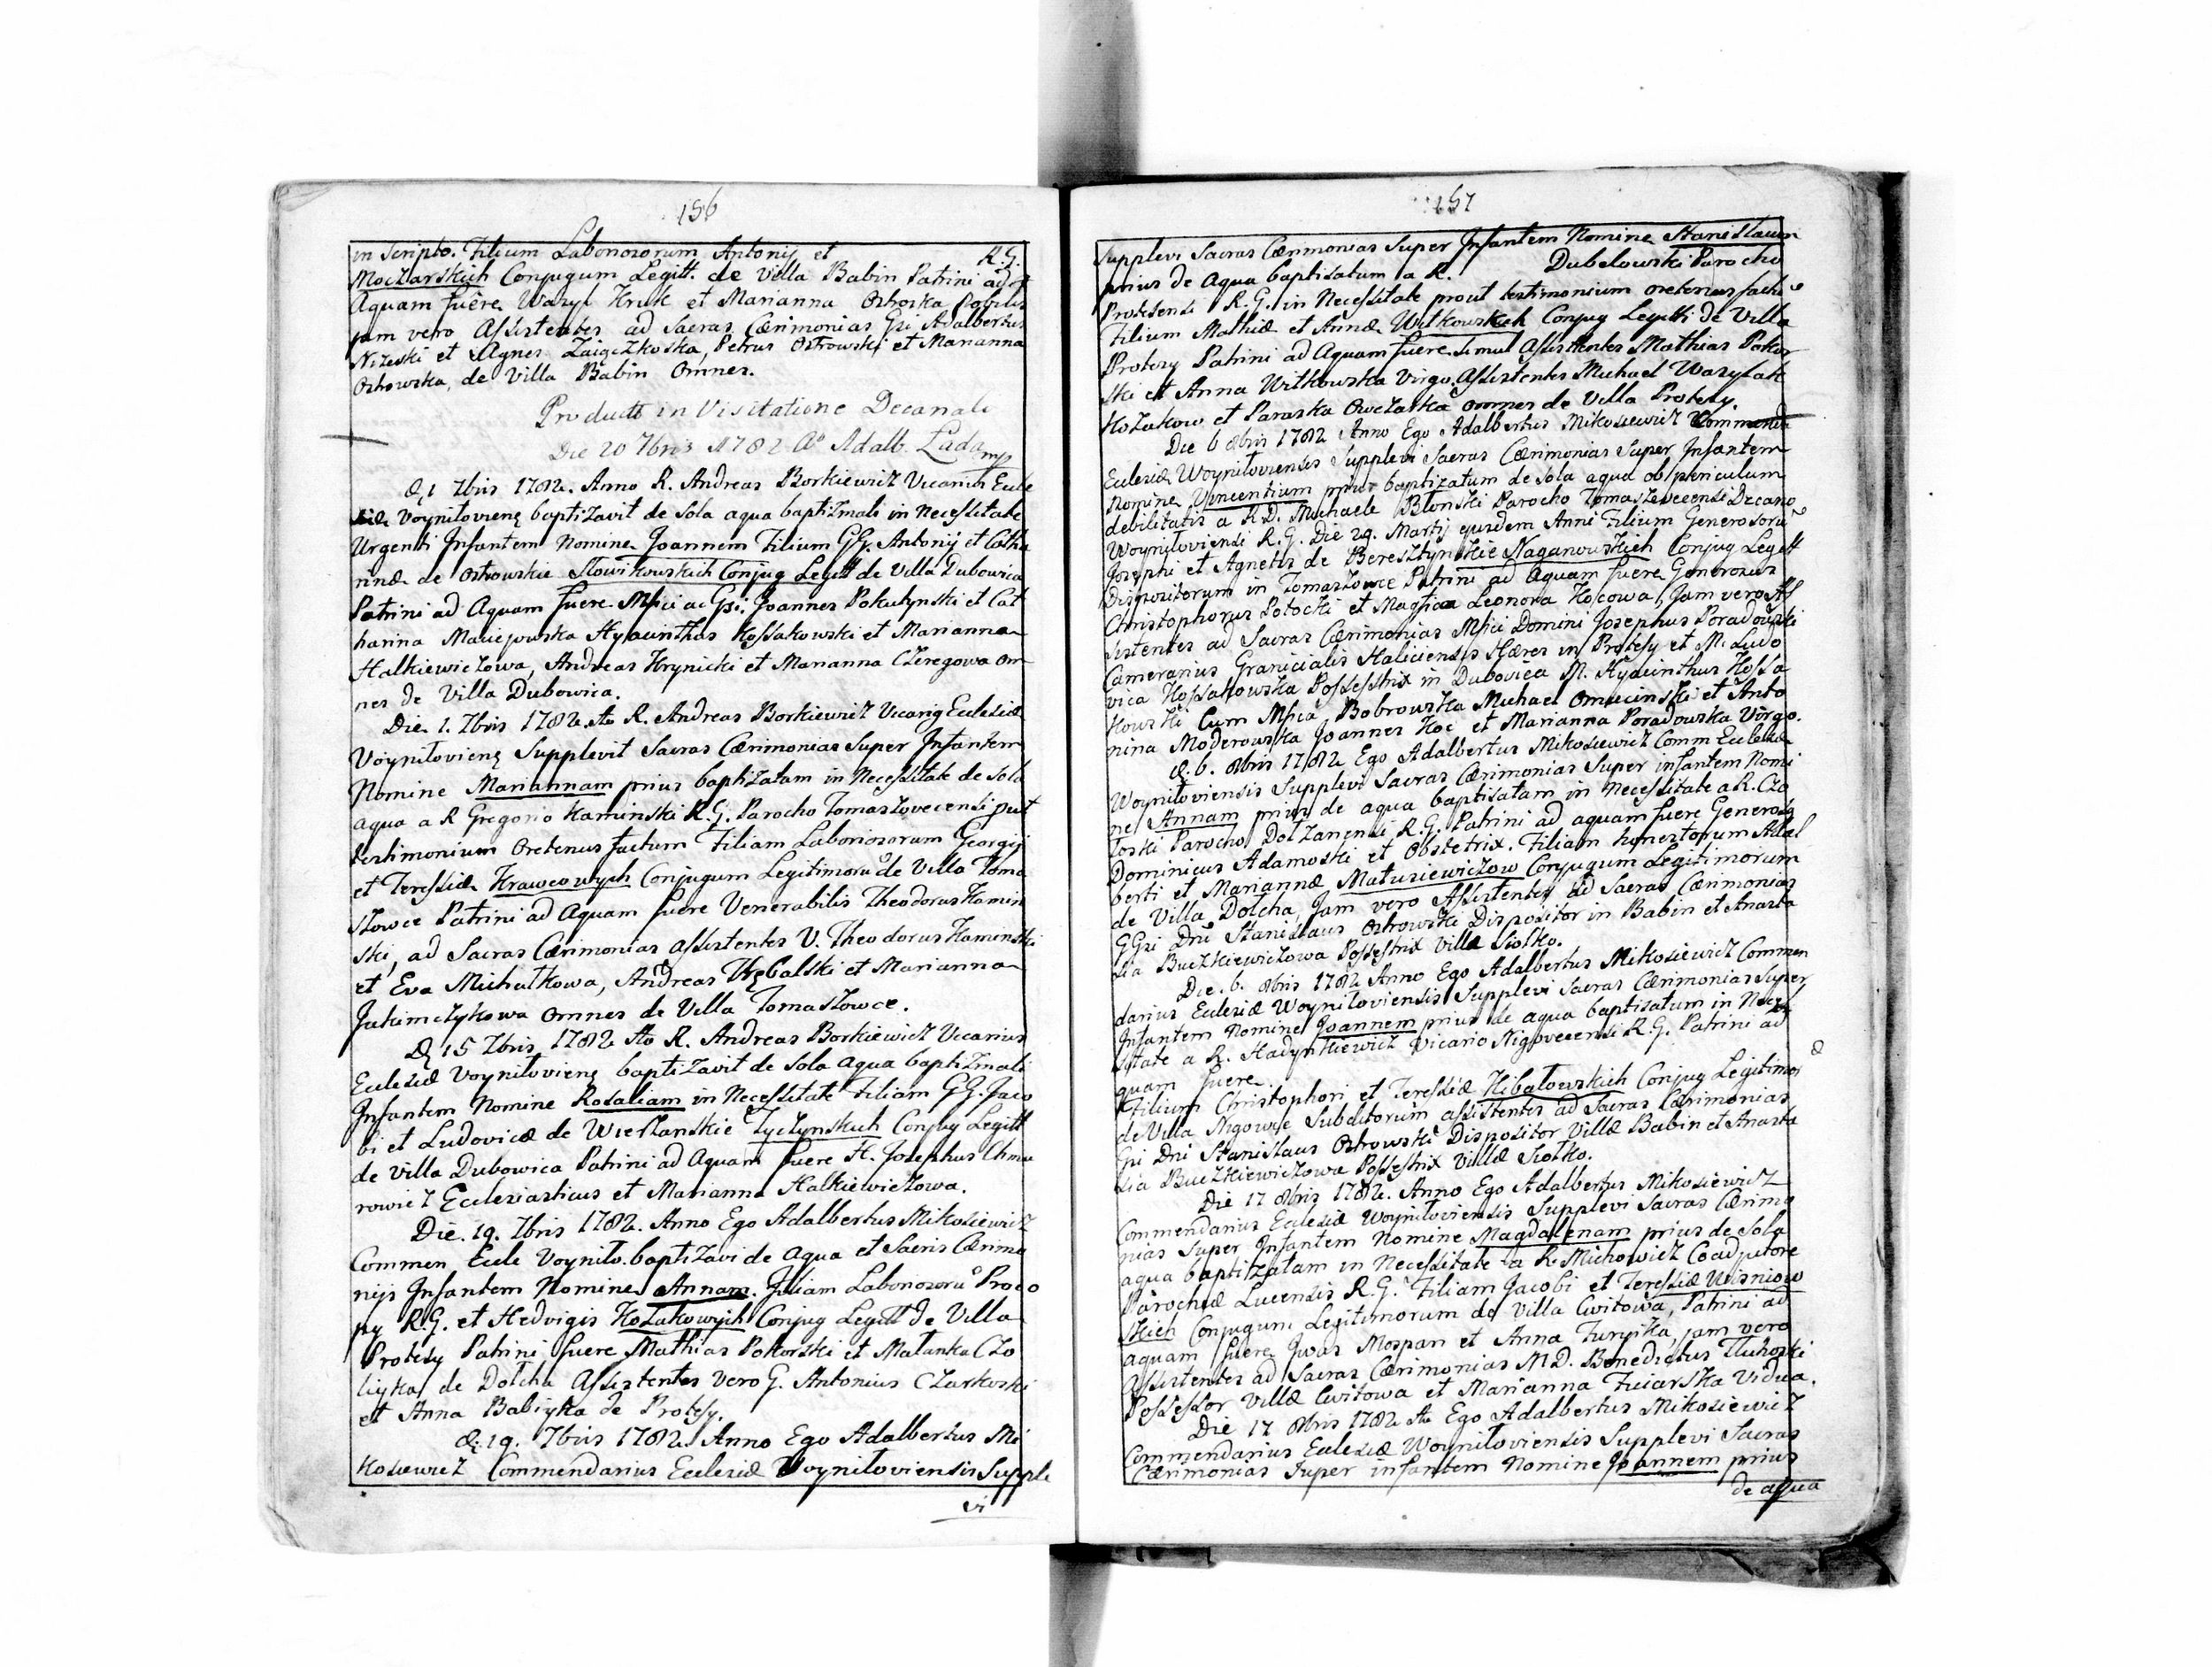 156
in scripto. Filium Laboriosorum Antonij et R.G.
Moczarskich Conjugum Legitt. de Villa Babin Patrini ad
Aquam fuêre Wazyl Hruk et Marianna Ostroska Nobilis
jam vero Assistentes ad Sacras Cærimonias Gsi Adalbertus
Nizeski et Agnes Zaigczkoska, Petrus Ostrowski et Marianna
Ostrowska, de Villa Babin Omnes.
Product in Visitatione Decanali
Die 20 7bris 1782 Ao Adalb. Lada mp
d. 1 7bris 1782. Anno R. Andreas Borkiewicz Vicarius Eccle
siæ Voyniłovienę baptizavit de Sola aqua baptizmali in Necessitate
Urgenti Infantem Nomine Joannem Filium GG. Antonij et Catha
rinæ de Ostrowskie Słowikowskich Conjug Legitt de Villa Dubowica
Patrini ad Aquam fuere Mfici ac Gsi. Joannes Pokutynski et Cat
harina Maciejowska Hyacinthus Kossakowski et Marianna
Halkiewiczowa, Andreas Hrynicki et Marianna Czeregowa om
nes de Villa Dubowica.
Die 1. 7bris 1782. Ao R. Andreas Borkiewicz Vicarig Ecclesiæ
Voyniłovienę Supplevit Sacras Cærimonias Super Infantem
Nomine Mariannam prius baptizatam in Necessitate de Sola
aqua a R Gregorio Kaminski R.G. Parocho Tomaszovecensi put
testimonium Oretenus factum Filiam Laboriosorum Georgij
et Teressiæ Krawcowych Conjugum Legitimorũ de Villa Toma
szowce Patrini ad Aquam fuere Venerabilis Theodorus Kamin
ski, ad Sacras Cærimonias assistentes V. Theodorus Kaminski
et Eva Michałkowa, Andreas Trębalski et Marianna
Jakimczykowa omnes de Villa Tomaszowce.
D 15 7bris 1782 Ao R. Andreas Borkiewicz Vicarius
Ecclesiæ Voyniłovienę baptizavit de Sola aqua baptizmali
Infantem Nomine Rosaliam in Necessitate Filiam GG. Jaco
bi et Ludovicæ de Wieszanskie Zyczynskich Conjug Legitt
de Villa Dubowica Patrini ad Aquam fuere H. Josephus Chmu
rowicz Ecclesiasticus et Marianna Halkiewiczowa.
Die. 19. 7bris 1782. Anno Ego Adalbertus Mikosiewicz
Commen. Eccle Voyniło. baptizavi de aqua et Sacris Cærimo
nijs Infantem Nomine Annam. Filiam Laboriosorũ Proco
py R.G. et Hedvigis Kozakowych Conjug Legitt de Villa
Protesy Patrini fuere Mathias Pokorski et Małanka Czo
liyka de Dołcha Assistentes vero G. Antonius Czarkoski
et Anna Babiyka de Protesy.
d. 19. 7bris 1782. Anno Ego Adalbertus Mi
kosiewicz Commendarius Ecclesiæ Woyniłoviensis Supple
vi
157
Supplevi Sacras Cærimonias Super Infantem Nomine Stanislaum
prius de Aqua baptisatum a R. Dubelowski Parocho
Protesensi R.G. in Necessitate prout testimonium oretenus factũ
Filium Mathiæ et Annæ Witkowskich Conjug Legitti de Villa
Protesy Patrini ad Aquam fuere simul Assistentes Mathias Pokor
ski et Anna Witkowska Virgo. Assistentes Michael Wazylak
Kozakow et Paraska Owczarka omnes de Villa Protesy.
Die 6 8bris 1782 Anno Ego Adalbertus Mikosiewicz Commenda
Ecclesiæ Woyniłoviensis Supplevi Sacras Cærimonias Super Infantem
Nomine Vincentium prius baptizatum de sola aqua ob periculum
debilitatis a R.D. Michaele Błonski Parocho Tomaszovecensi Decano
Woyniłoviensi R.G. Die 29. Martij ejusdem Anni Filium Generosorũ
Josephi et Agnetis de Beresztynskie Naganowskich Conjug Legitt
Dispozitorum in Tomaszowce Patrini ad Aquam fuere Generosus
Christophorus Potocki et Magfica Leonora Kocowa, Jam vero As
sistentes ad Sacras Cærimonias Mfici Domini Josephus Poradowski
Camerarius Granicialis Haliciensis Hæres in Protesy et M. Ludo
vica Kossakowska Possestrix in Dubovica M. Hyacinthus Kossa
kowski Cum Mfica Bobrowska Michael Omiecinski et Anto
nina Moderowska Joannes Koc et Marianna Poradowska Virgo.
d. 6. 8bris 1782 Ego Adalbertus Mikosiewicz Comm Ecclesiæ
Woyniłoviensis Supplevi Sacras Cærimonias Super infantem Nomi
ne Annam prius de aqua baptisatam in Necessitate a R. Czo
łoski Parocho Dołzanensi R.G. Patrini ad aquam fuere Generosg
Dominicus Adamoski et Obstetrix. Filiam honestorum Adal
berti et Mariannæ Matusiewiczow Conjugum Legitimorum
de Villa Dołcha, Jam vero Assistentes ad Sacras Cærimonias
GGsi Dni Stanislaus Ostrowski Dispositor in Babin et Anasta
sia Buczkiewiczowa Possestrix Villæ Siołko.
Die. 6. 8bris 1782 Anno Ego Adalbertus Mikosiewicz Commen
darius Ecclesiæ Woyniłoviensis Supplevi Sacras Cærimonias Super
Infantem Nomine Joannem prius de aqua baptisatum in Neces
sitate a R. Hadynkiewicz Vicario Nigovecensi R.G. Patrini ad
quam fuere.
Filium Christophori et Teressiæ Kibałowskich Conjug Legitimor
de Villa Nigowce Subditorum assistentes ad Sacras Cærimonias
Gsi Dni Stanislaus Ostrowski Dispositor Villæ Babin et Anasta
sia Buczkiewiczowa Possestrix Villæ Siołko.
Die 17 8bris 1782. Anno Ego Adalbertus Mikosiewicz
Commendarius Ecclesiæ Woyniłoviensis Supplevi Sacras Cærimo
nias Super Infantem Nomine Magdalenam prius de Sola
aqua baptizatam in Necessitate a R. Michowicz Coadjutore
Parochiæ Lucensis R.G. Filiam Jacobi et Teressiæ Wisniow
skich Conjugum Legitimorum de Villa Cwitowa, Patrini ad
aquam fuere Jwas Mospan et Anna Furyika, jam vero
Assistentes ad Sacras Cærimonias M.D. Benedictus Tłuhoski
Possessor Villæ Cwitowa et Marianna Fuiarska Vidua.
Die 17 8bris 1782 Ao Ego Adalbertus Mikosiewicz
Commendarius Ecclesiæ Woyniłoviensis Supplevi Sacras
Cærimonias Super infantem Nomine Joannem prius
de aqua